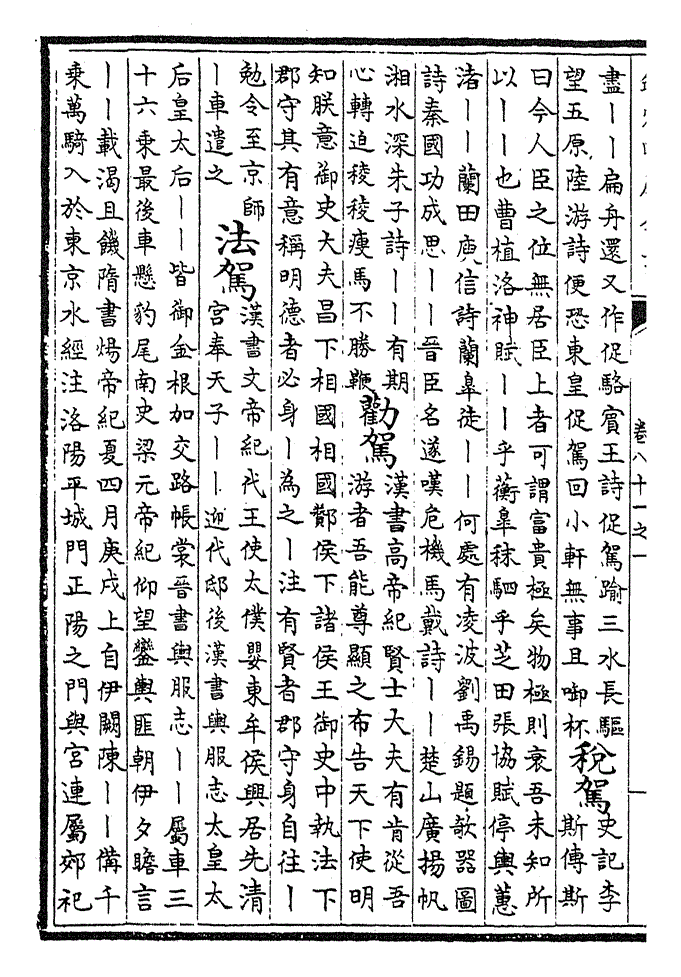 卷八十一之一
盡丨丨扁舟還又作促駱賓王詩促駕踰三水長驅
望五原陸游詩便恐東皇促駕回小軒無事且啣杯
稅駕
史記李
斯傳斯
曰今人臣之位無居臣上者可謂富貴極矣物極則衰吾未知所
以丨丨也曹植洛神賦丨丨乎蘅皐秣駟乎芝田張協賦停輿蕙
渚丨丨蘭田庾信詩蘭皐徒丨丨何處有凌波劉禹錫題欹器圖
詩秦國功成思丨丨晉臣名遂嘆危機馬戴詩丨丨楚山廣揚帆
湘水深朱子詩丨丨有期
心轉迫稜稜瘦馬不勝鞭
勸駕
漢書高帝紀賢士大夫有肯從吾
游者吾能尊顯之布告天下使明
知朕意御史大夫昌下相國相國酇侯下諸侯王御史中執法下
郡守其有意稱明德者必身丨為之丨注有賢者郡守身自往丨
勉令至京師
丨車遣之
法駕
漢書文帝紀代王使太僕嬰東牟侯興居先清
宮奉天子丨丨迎代邸後漢書輿服志太皇太
后皇太后丨丨皆御金根加交路帳裳晉書輿服志丨丨屬車三
十六乘最後車懸豹尾南史梁元帝紀仰望鑾輿匪朝伊夕瞻言
丨丨載渴且饑隋書煬帝紀夏四月庚戌上自伊闕陳丨丨備千
乘萬騎入於東京水經注洛陽平城門正陽之門與宮連屬郊祀